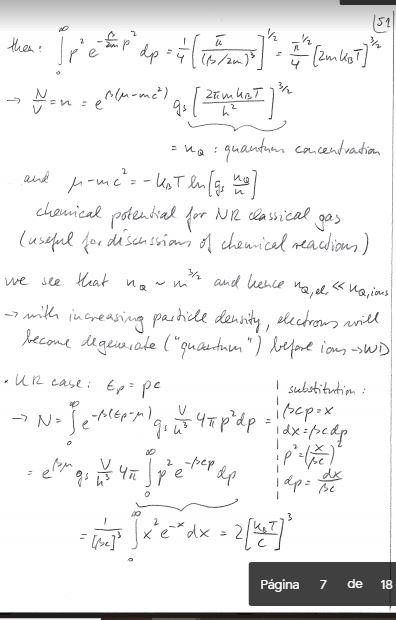 51
then: ∫₀^∞ p² e^{-β/2m p²} dp = 1/4 [π/(β/2m)³]^{1/2} = π^{1/2}/4 [2mk_BT]^{3/2}
→ N/V = n = e^{β(μ-mc²)} g_s [2πmk_BT/h²]^{3/2}
= n_Q : quantum concentration
and μ-mc² = -k_BT ln[g_s n_Q/n]
chemical potential for NR classical gas
(useful for discussions of chemical reactions)
we see that n_Q ~ m^{3/2} and hence n_{Q,el.} ≪ n_{Q,ions}
→ with increasing particle density, electrons will
become degenerate ("quantum") before ions → WD
• UR case: ε_p = pc
→ N = ∫₀^∞ e^{-β(ε_p-μ)} g_s V/h³ 4π p² dp =
= e^{βμ} g_s V/h³ 4π ∫₀^∞ p² e^{-βcp} dp
= 1/[βc]³ ∫₀^∞ x² e^{-x} dx = 2[k_BT/c]³
substitution:
βcp = x
dx = βc dp
p² = (x/βc)²
dp = dx/βc
Página 7 de 18